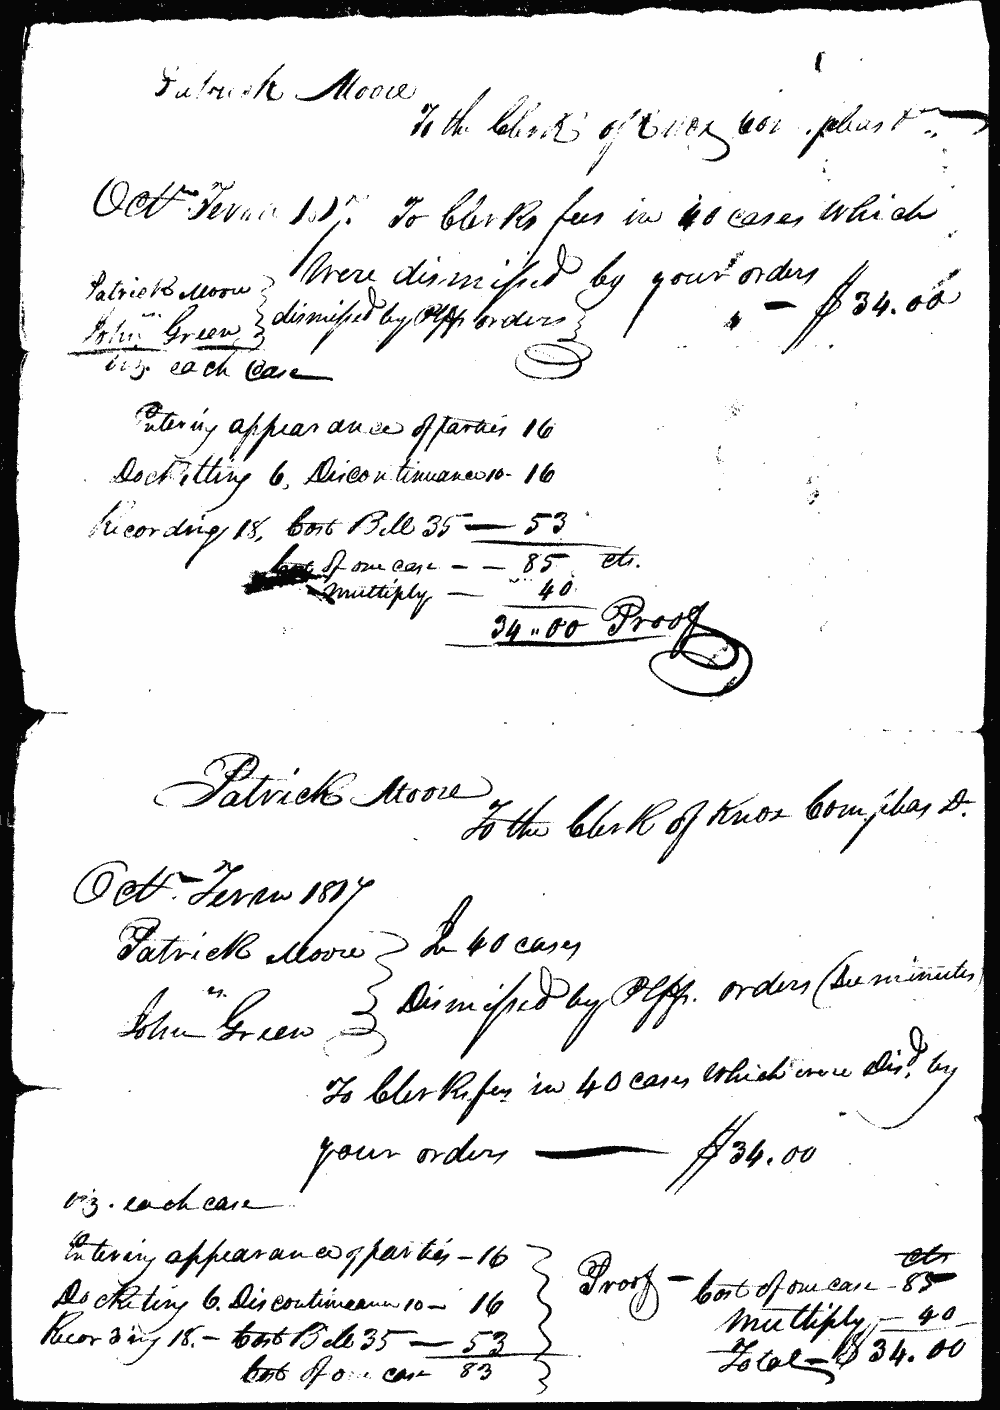 Patrick Moore
To the Clerk of Knox Com. pleas Dr.
Octr. Term 1817. To Clerks fees in 40 cases which
were dismissed by your orders
Patrick Moore
vs.
John Green
dismissed by Plffs orders
" — $34.00
viz. each Case
Entering appearance of parties 16
Docketting 6, Discontinuance 10 - 16
Recording 18, Cost Bill 35 — 53
Cost of one case — — 85 cts.
Multiply — 40
34.00 Proof
Patrick Moore
To the Clerk of Knox Com. pleas Dr.
Octr. Term 1817
Patrick Moore
vs.
John Green
In 40 cases
Dismissed by Plffs. orders (See minutes
To Clerks fees in 40 cases which were Disd. by
your orders — $34.00
viz. each case
Entering appearance of parties — 16
Docketing 6. Discontinuance 10 — 16
Recording 18. — Cost Bill 35 — 53
Cost of one case 83
Proof —
cts
Cost of one case — 85
Multiply — 40
Total — $34.00